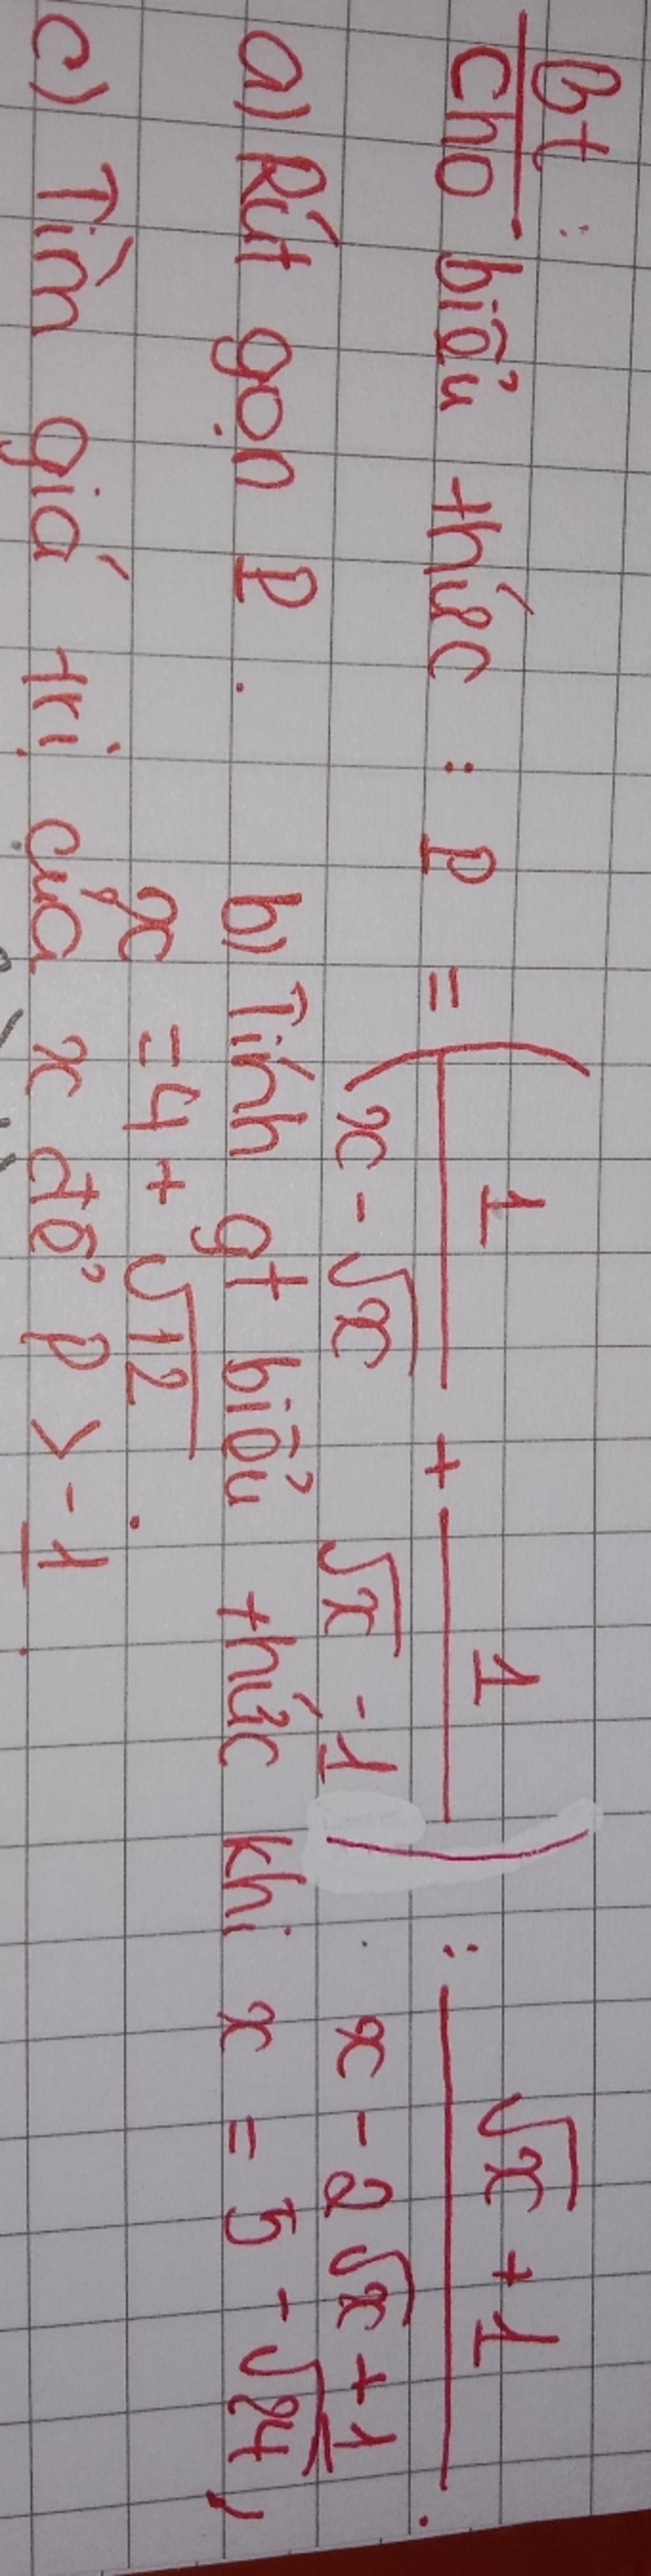 Bt :
Cho biểu thức : P = ( 1/(x - √x) + 1/(√x - 1) ) : (√x + 1)/(x - 2√x + 1) .
a) Rút gọn P . b) Tính gt biểu thức khi x = 5 - √24 ,
x = 4 + √12 .
c) Tìm giá trị của x để P > -1 .